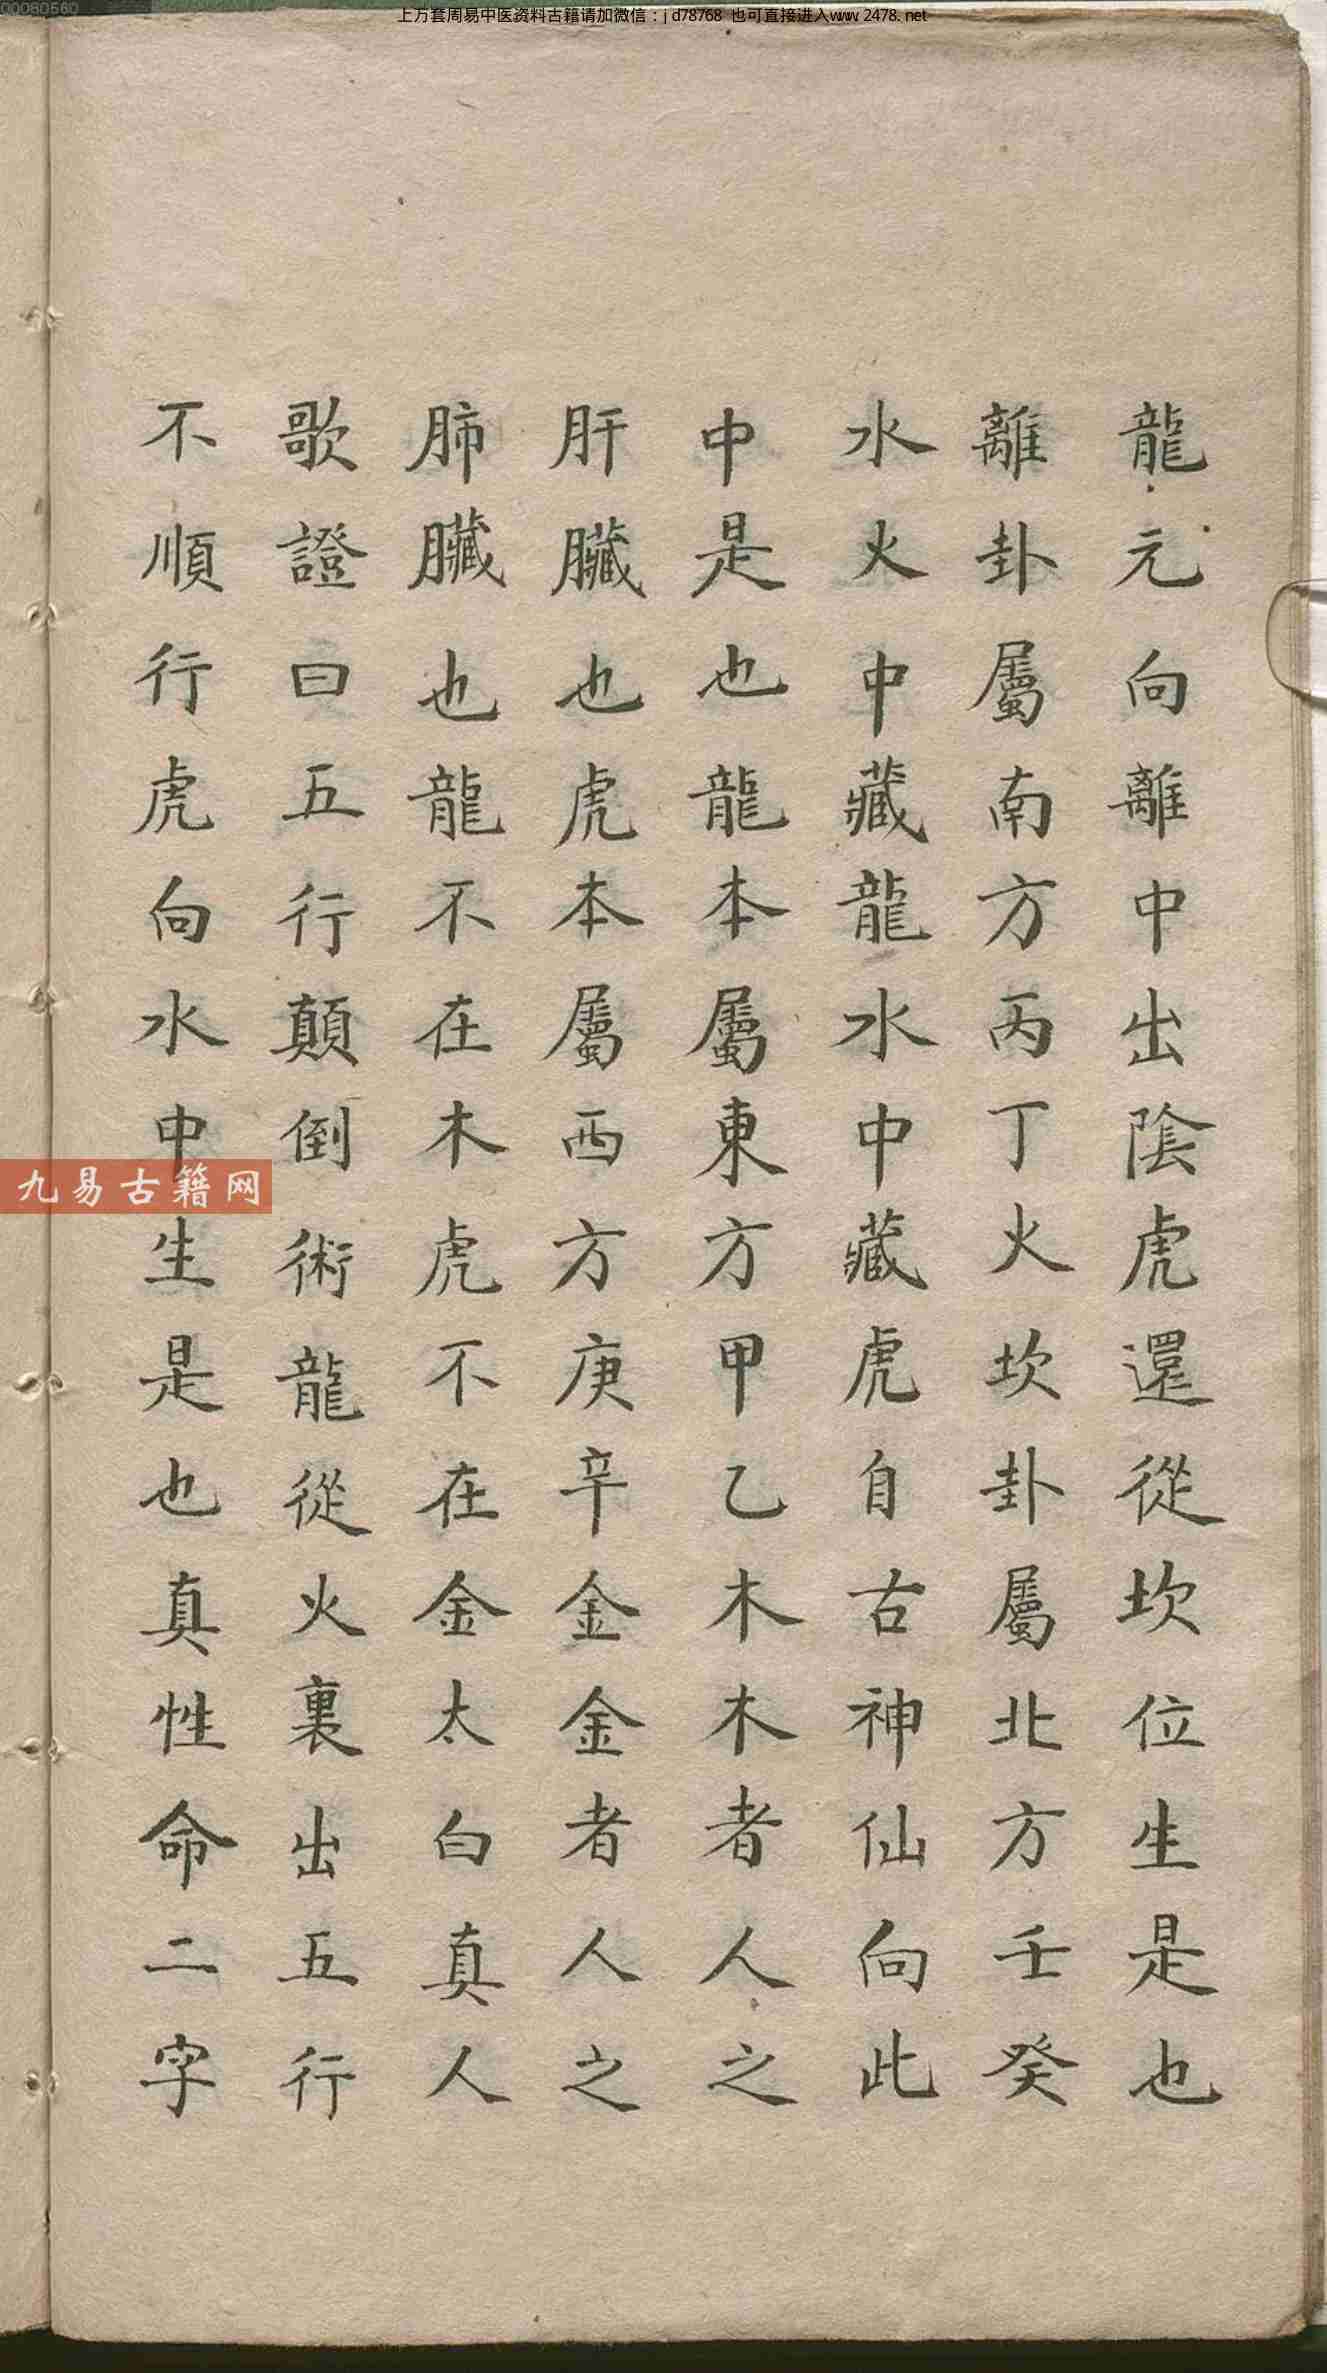 00080560
上万套周易中医资料古籍请加微信:jd78768 也可直接进入www.2478.net
龍元向離中出陰虎還從坎位生是也
離卦屬南方丙丁火坎卦屬北方壬癸
水火中藏龍水中藏虎自古神仙向此
中是也龍本屬東方甲乙木木者人之
肝臟也虎本屬西方庚辛金金者人之
肺臟也龍不在木虎不在金太白真人
歌證曰五行顛倒術龍從火裏出五行
不順行虎向水中生是也真性命二字
九易古籍网